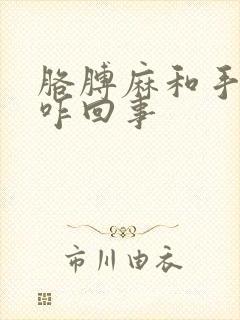 胳膊麻和手
咋回事
市川由衣